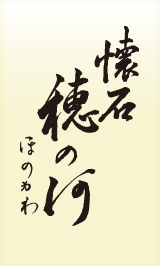 懐石
穂の河
ほのかわ